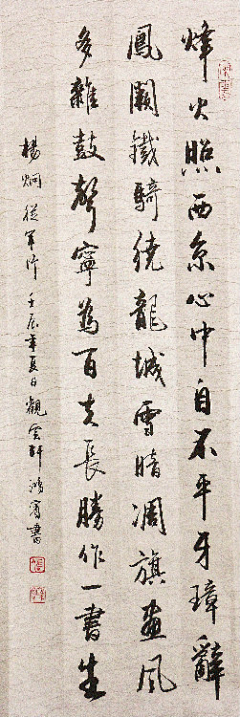 烽火照西京心中自不平牙璋辭
鳳闕鐵騎繞龍城雪暗凋旗畫風
多雜鼓聲寧為百夫長勝作一書生
楊炯從軍行壬辰年夏日觀雲軒鴻賓書